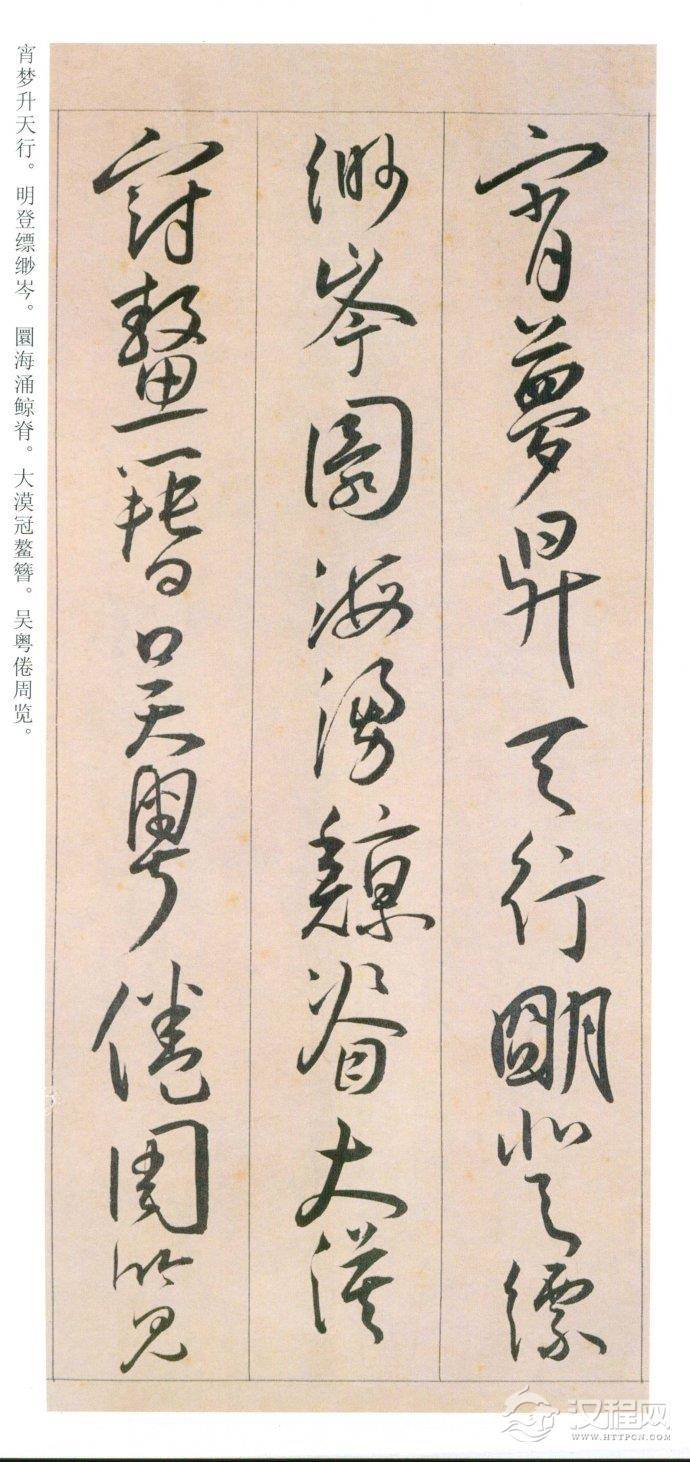 宵夢昇天行朙登縹
緲岑圜海湧鯨脊大漠
冠鼇簪吳粵倦周覽
宵梦升天行。明登缥缈岑。圜海涌鲸脊。大漠冠鳌簪。吴粤倦周览。
汉程网
WWW.HTTPCN.COM